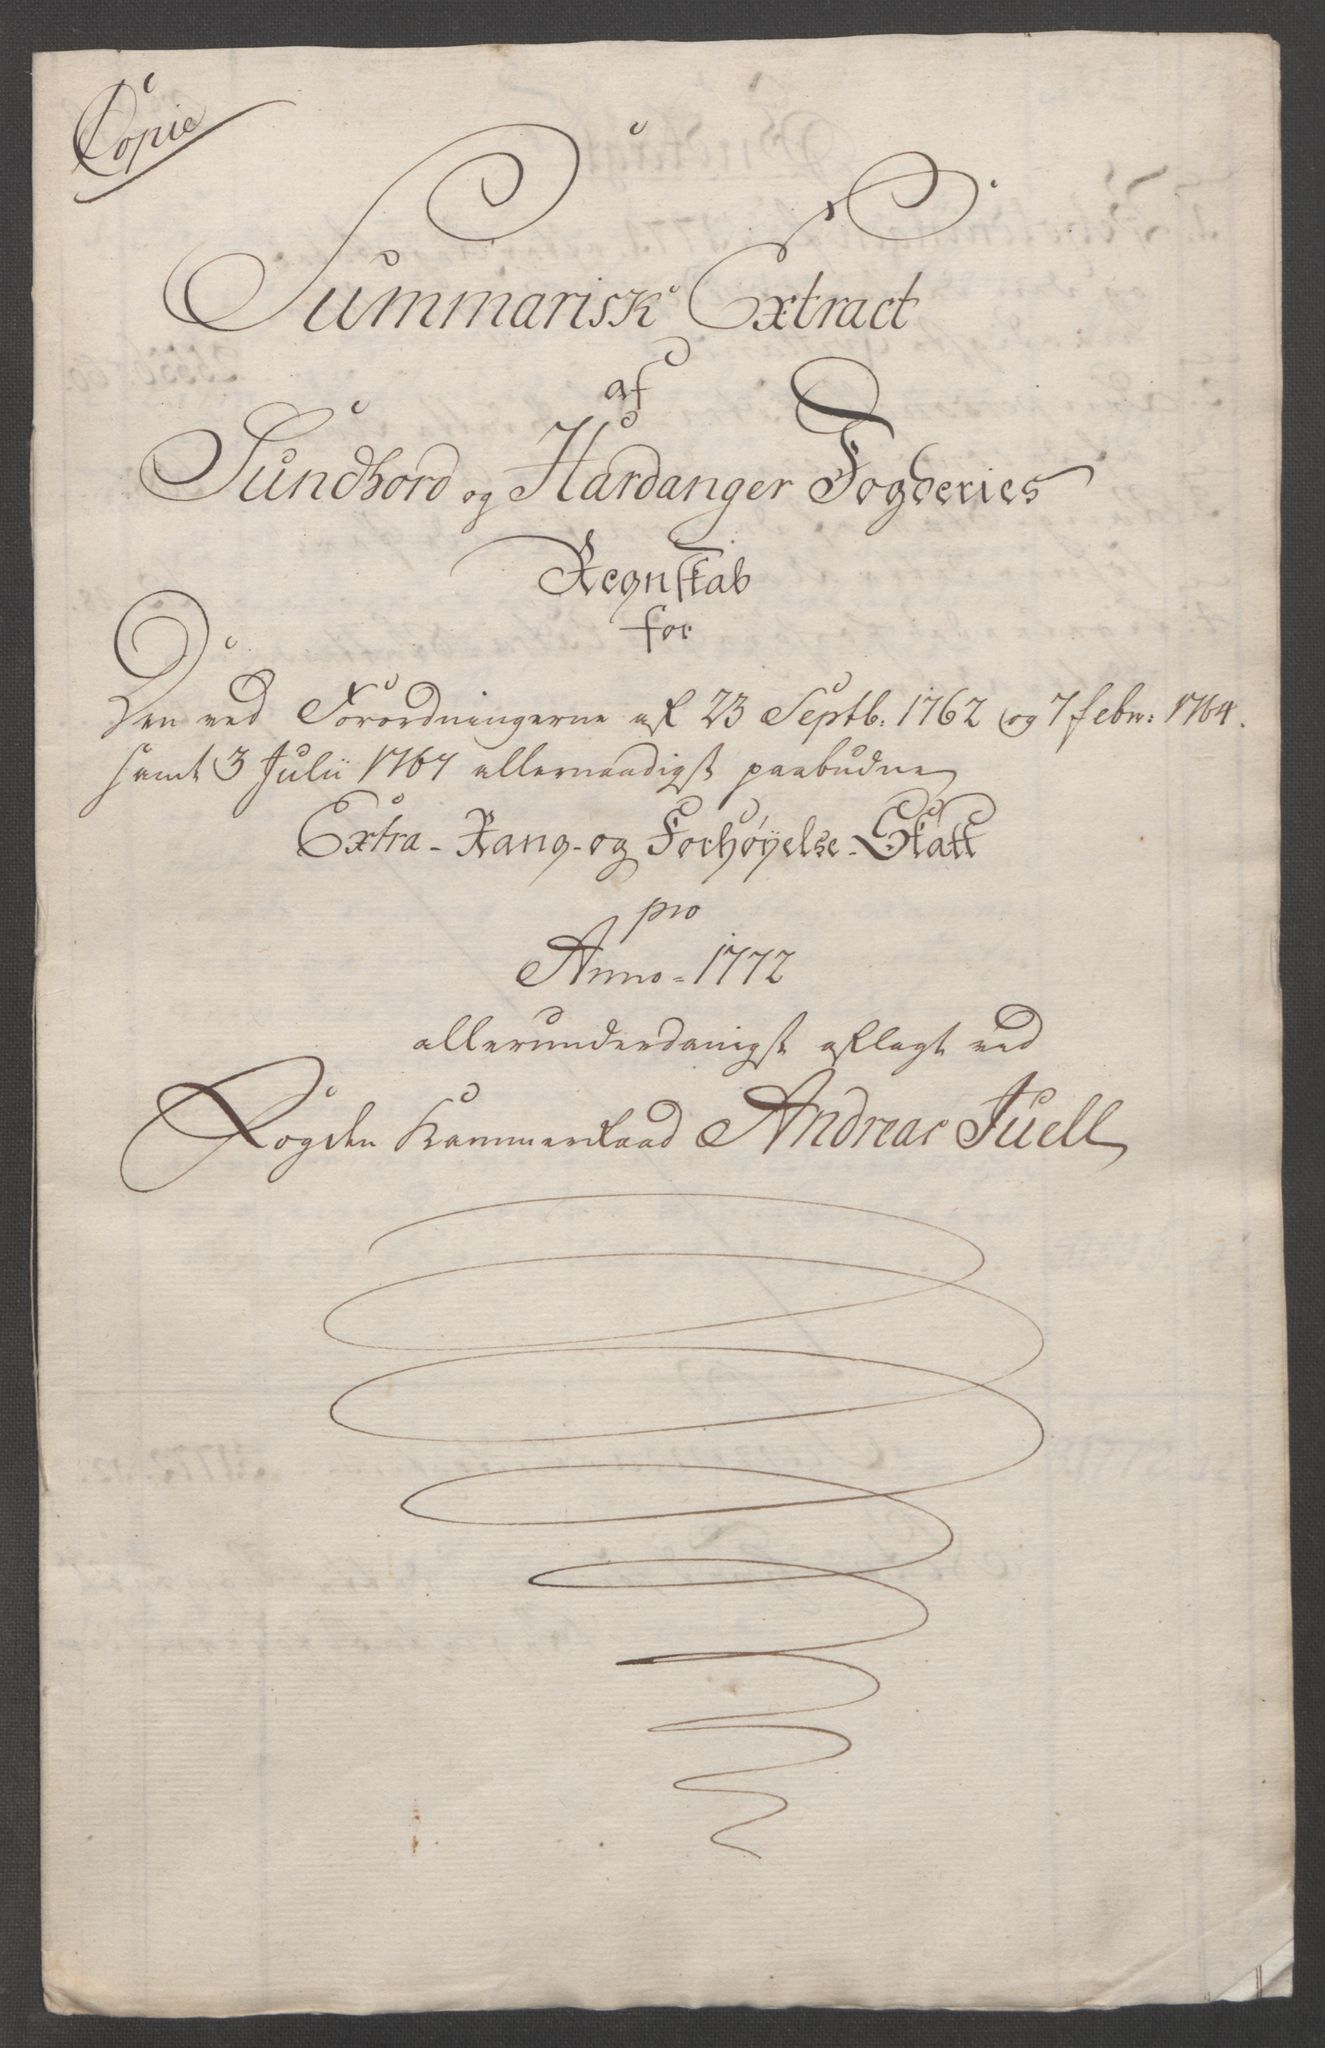 Copie
Summarisk Extract
af
Sundhord og Hardanger Fogderies
Regnskab
for
Den ved Forordningerne af 23 Septb: 1762 og 7 febr: 1764.
samt 3 Julii 1767 allernaadigst paabudne
Extra- Rang- og Forhøyelse-Skatt
pro
Anno= 1772
allerunderdanigst aflagt ved
Fogden Kammerraad Andreas Juell